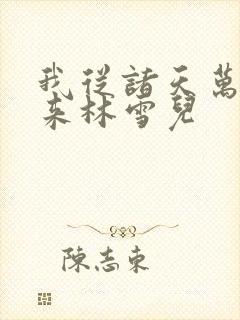 我從諸天萬
来林雪兒
陳志東